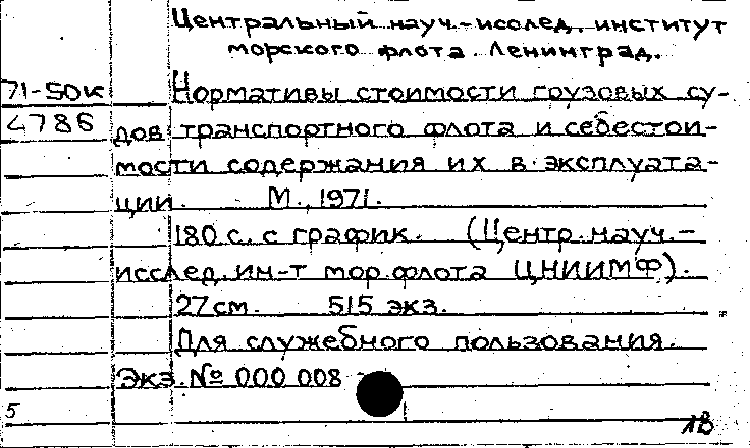 Центральный науч.-исслед. институт
морского флота. Ленинград.
71-50к Нормативы стоимости грузовых су-
4786 дов транспортного флота и себестои-
мости содержания их в эксплуата-
ции. М., 1971.
180 с. с график. (Центр. науч.-
исслед. ин-т мор. флота ЦНИИМФ).
27см. 515 экз.
Для служебного пользования.
Экз. № 000 008
5
1В